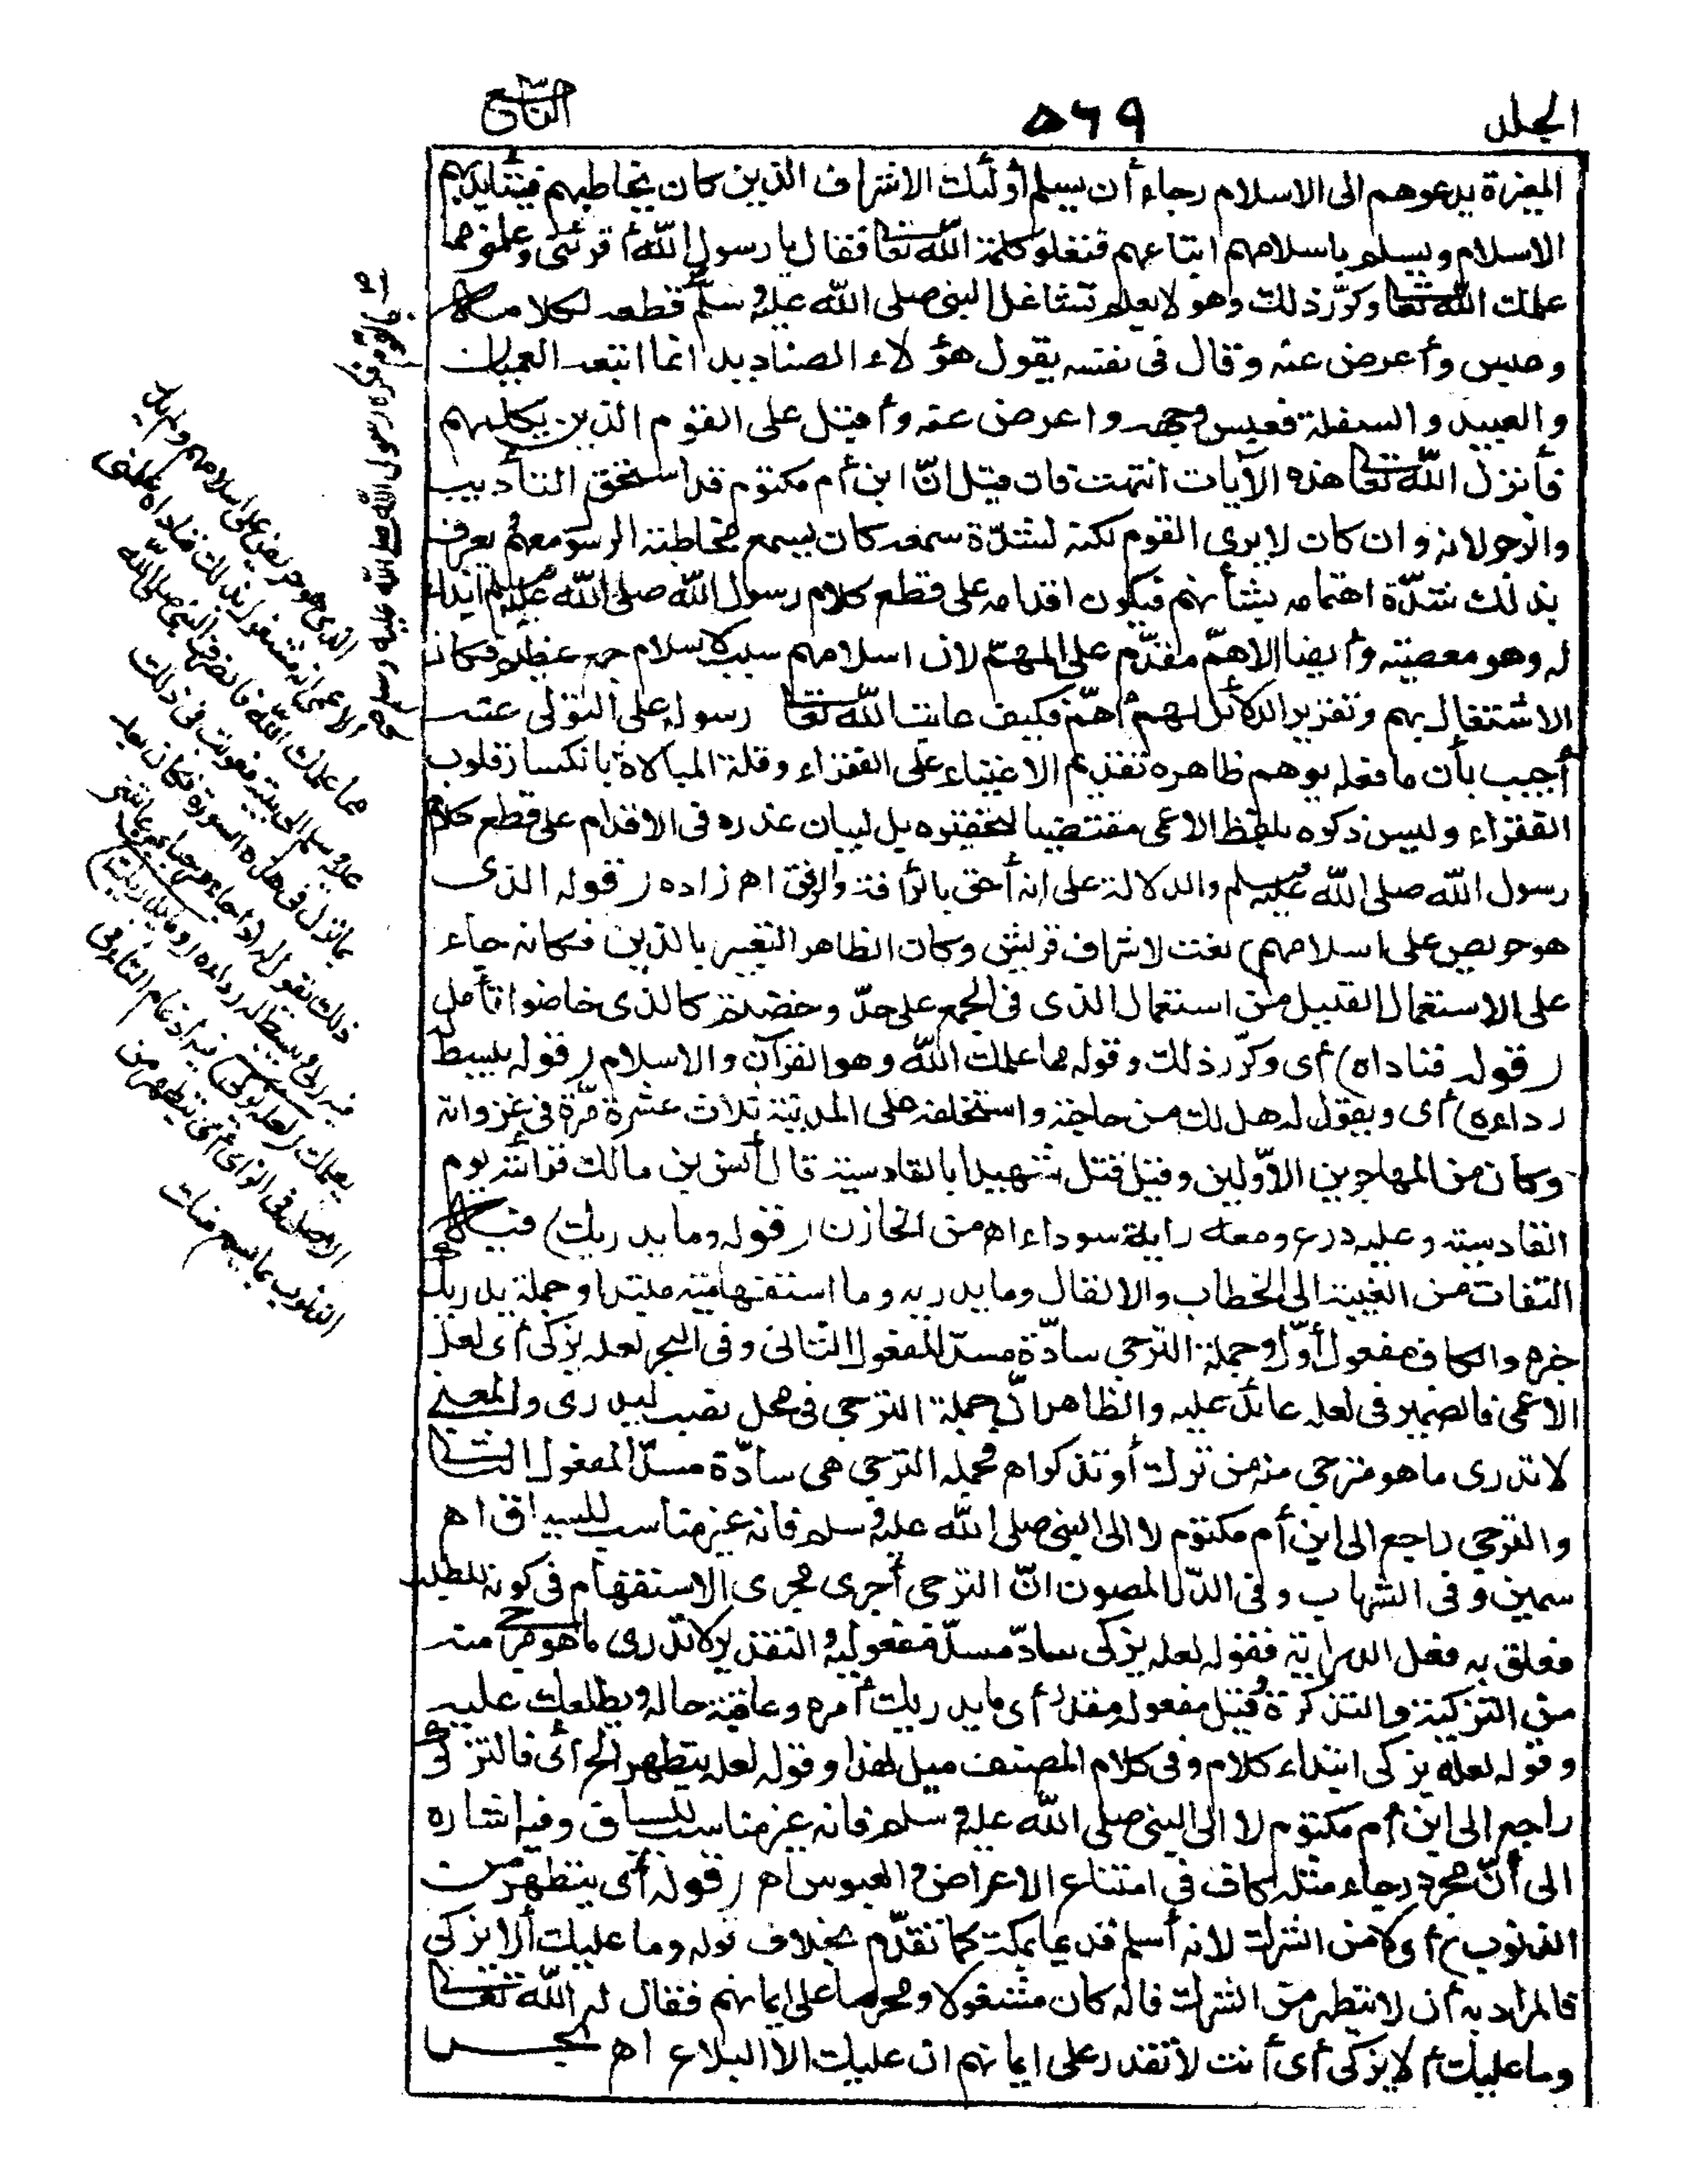 الجلد ٥٦٩ التاسع
المغيرة يدعوهم الى الاسلام رجاء أن يسلم أولئك الاشراف الذين كان يخاطبهم فيتأيد بهم
الاسلام ويسلم باسلامهم اتباعهم فتعلو كلمة الله تعا فقال يا رسول الله أقرئنى وعلمنى مما
علمك الله تعا وكرّر ذلك وهو لا يعلم تشاغل النبى صلى الله عليه وسلم قطعه لكلامه
وعبس وأعرض عنه وقال فى نفسه يقول هؤلاء الصناديد انما اتبعه العميان
والعبيد والسفلة فعبس وجهه واعرض عنه وأقبل على القوم الذين يكلمهم
فأنزل الله تعا هذه الآيات انتهت فان قيل انّ ابن أم مكتوم قد استحق التأديب
والزجر لانه وان كان لا يرى القوم لكنه لشدّة سمعه كان يسمع مخاطبة الرسو معهم يعرف
بذلك شدّة اهتمامه بشأنهم فيكون اقدامه على قطع كلام رسول الله صلى الله عليه وسلم ايذاء
له وهو معصية وأيضا الاهمّ مقدّم على المهمّ لان اسلامهم سبب لاسلام جمع عظيم فكان
الاشتغال بهم وتقرير الدلائل لهم أهمّ فكيف عاتب الله تعا رسوله على التولى عنه
أجيب بأن ما فعله يوهم ظاهره تقديم الاغنياء على الفقراء وقلة المبالاة بانكسار قلوب
الفقراء وليس ذكره بلفظ الاعمى مقتضيا لتحقيره بل لبيان عذره فى الاقدام على قطع كلام
رسول الله صلى الله عليه وسلم والدلالة على انه أحق بالرأفة والرفق اه زاده (قوله الذى
هو حريص على اسلامهم) نعت لاشراف قريش وكان الظاهر التعبير بالذين فكانه جاء
على الاستعمال القليل من استعمال الذى فى الجمع على حدّ وخضتم كالذى خاضوا تأمل
(قوله فناداه) أى وكرّر ذلك وقوله مما علمك الله وهو القرآن والاسلام (قوله يبسط له
رداءه) أى ويقول له هل لك من حاجة واستخلفه على المدينة ثلاث عشرة مرّة فى غزواته
وكان من المهاجرين الاوّلين وقيل قتل شهيدا بالقادسية قال أنس بن مالك فرأيته يوم
القادسية وعليه درع ومعه راية سوداء اه من الخازن (قوله وما يدريك) فيه
التفات من الغيبة الى الخطاب والا لقال وما يدريه وما استفهامية مبتدا وجملة يدريك
خبره والكاف مفعول أوّل وجملة الترجى سادّة مسدّ المفعول الثانى وفى البحر لعله يزكى أى لعل
الاعمى فالضمير فى لعله عائد عليه والظاهر انّ جملة الترجى فى محل نصب ليدرى والمعنى
لا تدرى ما هو مترجى منه من تزك أو تذكر اه فجملة الترجى هى سادّة مسدّ المفعول الثانى
والترجى راجع الى ابن أم مكتوم لا الى النبى صلى الله عليه وسلم فانه غير مناسب للسياق اه
سمين وفى الشهاب وفى الدرّ المصون انّ الترجى أجرى مجرى الاستفهام فى كونه للطلب
فعلق به فعل الدراية فقوله لعله يزكى سادّ مسدّ مفعوليه والتقدير لا تدرى ما هو مرجى منه
من التزكية والتذكرة وقيل مفعوله مقدر أى ما يدريك أمره وعاقبة حاله ويطلعك عليه
وقوله لعله يزكى ابتداء كلام وفى كلام المصنف ميل لهذا وقوله لعله يتطهر الخ أى فالترجى
راجع الى ابن أم مكتوم لا الى النبى صلى الله عليه وسلم فانه غير مناسب للسياق وفيه اشارة
الى أنّ مجرد رجاء مثله كاف فى امتناع الاعراض والعبوس اه (قوله أى يتطهر من
الذنوب) أى لا من الشرك لانه أسلم قديما بمكة كما تقدّم بخلاف قوله وما عليك ألا يزكى
فالمراد به أن لا يتطهر من الشرك فانه كان مشغولا ومحرصا على ايمانهم فقال له الله تعا
وما عليك ألا يزكى أى أنت لا تقدر على ايمانهم ان عليك الا البلاغ اه
رسول الله صلى الله عليه وسلم
الذى هو حريص على اسلامهم ولم يدر
الاعمى انه مشغول بذلك فناداه علمنى
مما علمك الله فانصرف النبى صلى الله
عليه وسلم الى بيته فعوتب فى ذلك
بما نزل فى هذه السورة فكان بعد
ذلك يقول له اذا جاء مرحبا بمن عاتبنى
فيه ربى ويبسط له رداءه (وما يدريك)
يعلمك (لعله يزكى) فيه ادغام التاء فى
الاصل فى الزاى أى يتطهر من
الذنوب بما يسمع منك